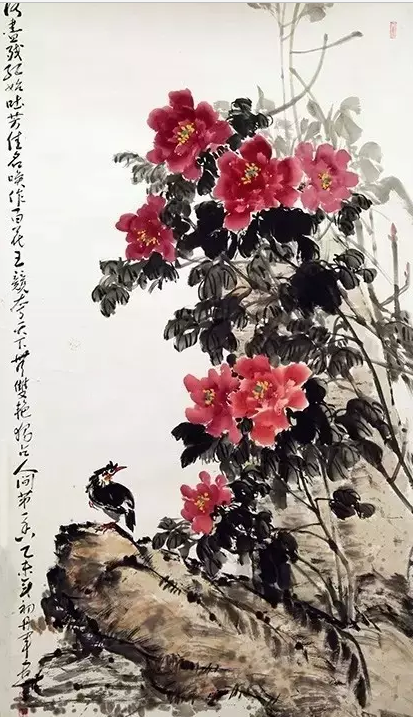 落盡残红始吐芳佳名唤作百花王競夸天下無雙艳獨占人间第一香乙未年初